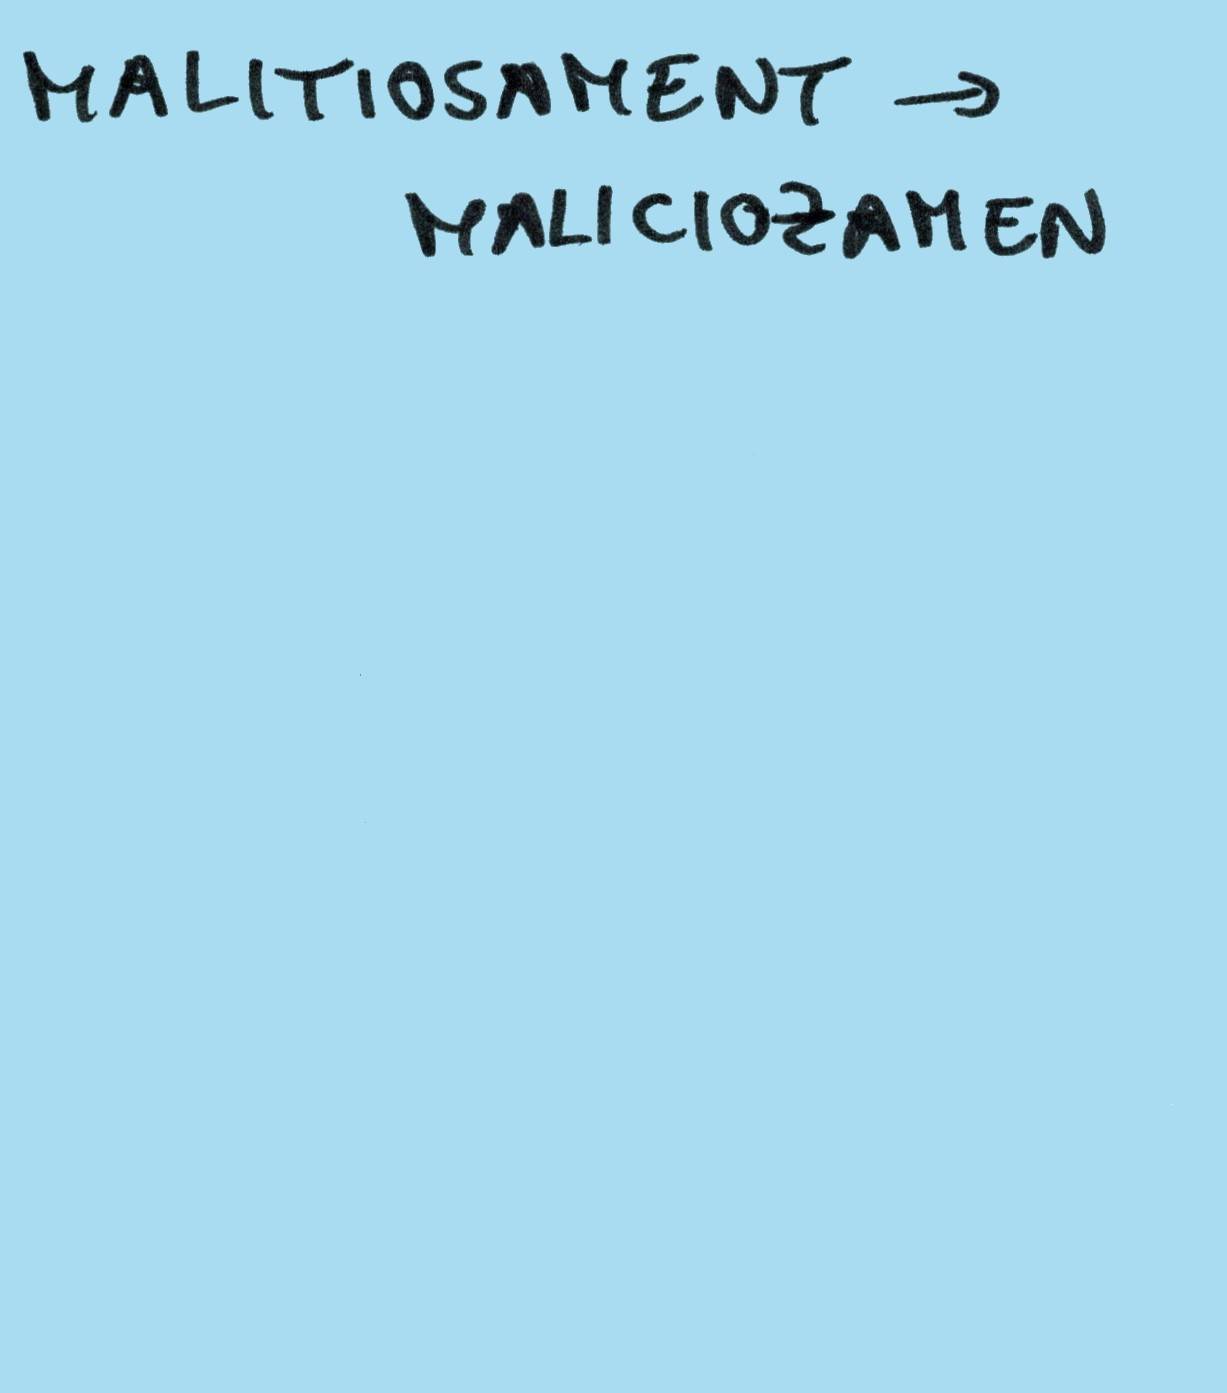 MALITIOSAMENT →
MALICIOZAMEN